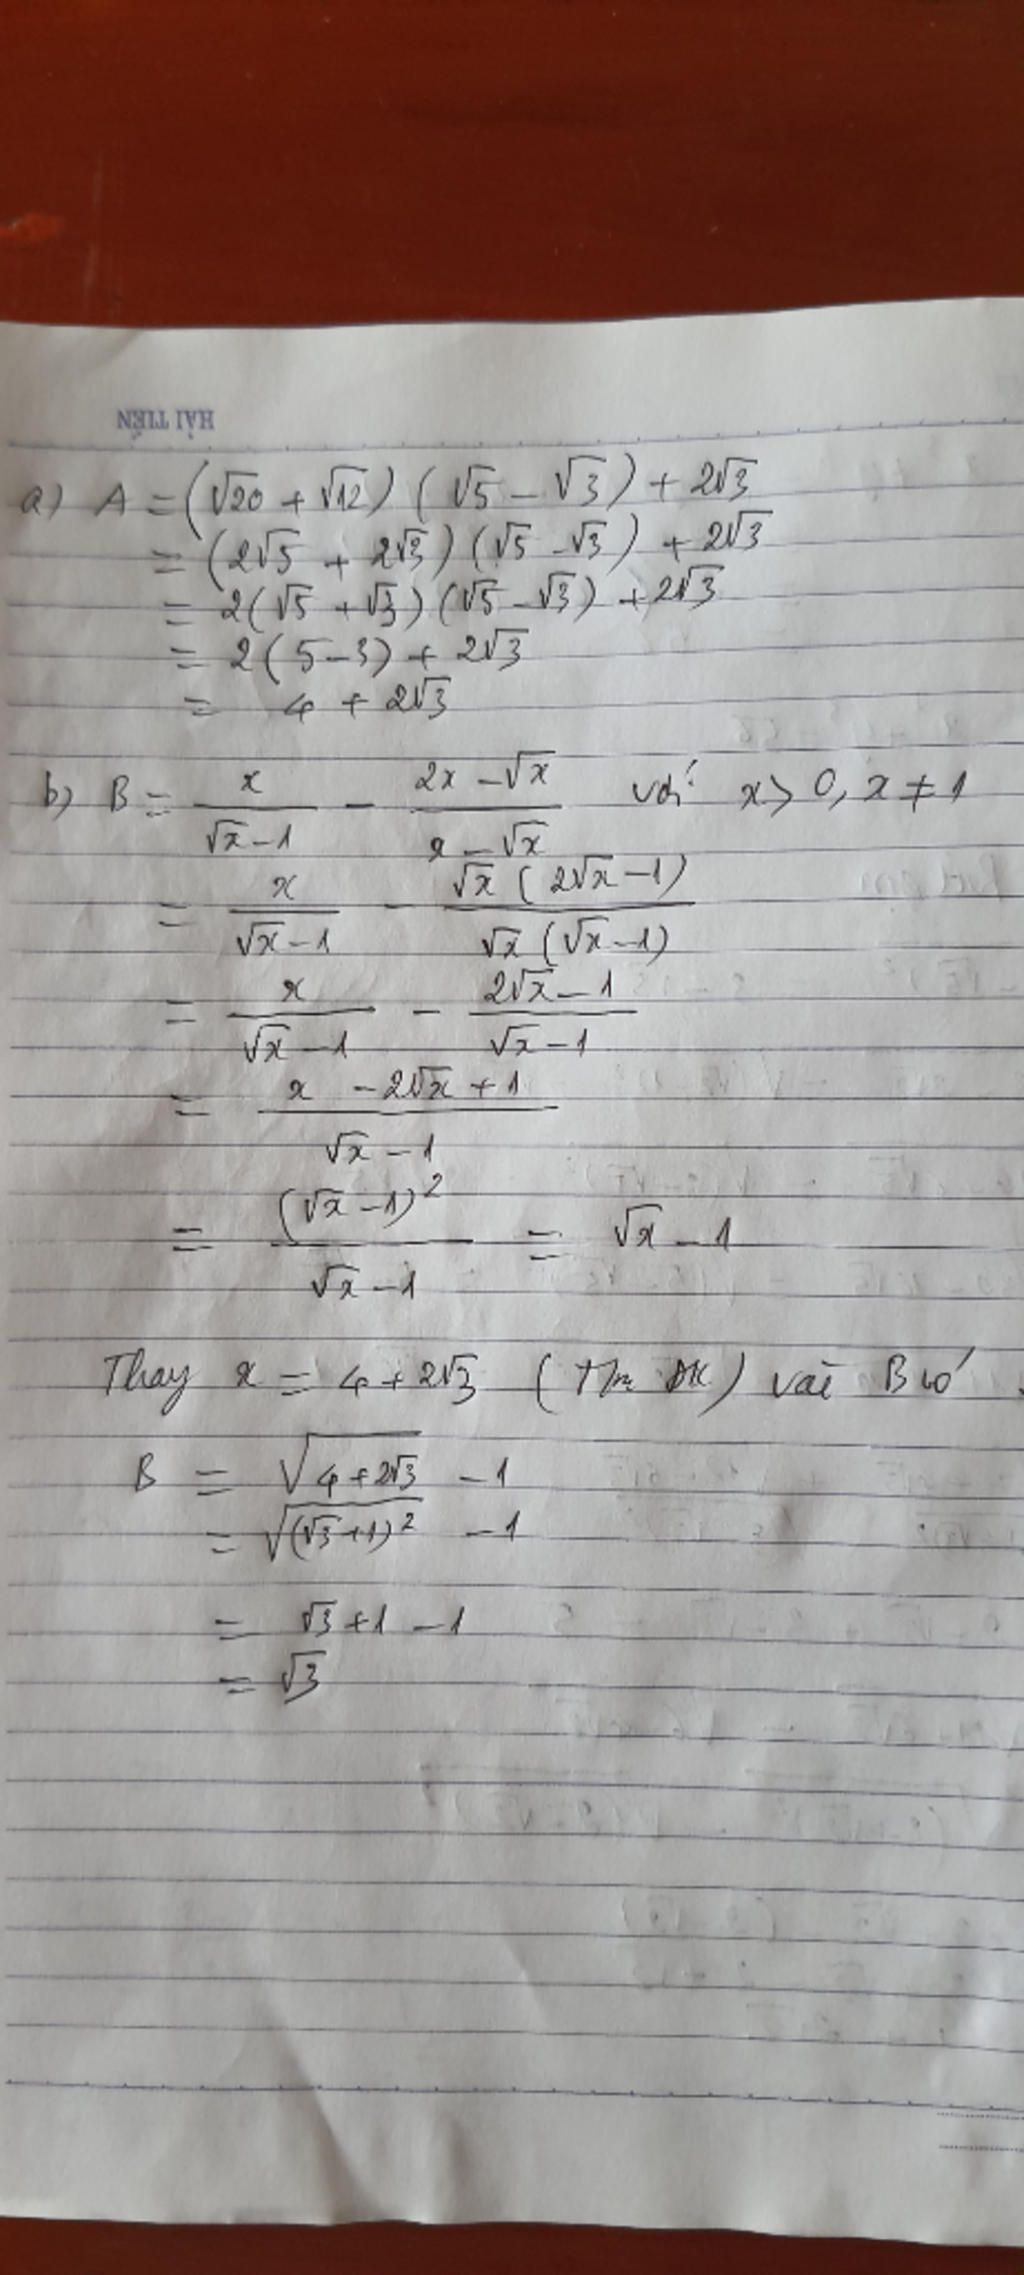 HẢI TIẾN
a) A = (√20 + √12) (√5 - √3) + 2√3
= (2√5 + 2√3) (√5 - √3) + 2√3
= 2(√5 + √3) (√5 - √3) + 2√3
= 2(5-3) + 2√3
= 4 + 2√3
b) B = x/(√x-1) - (2x-√x)/(x-√x) với x > 0, x ≠ 1
= x/(√x-1) - √x(2√x-1)/(√x(√x-1))
= x/(√x-1) - (2√x-1)/(√x-1)
= (x - 2√x + 1)/(√x-1)
= (√x-1)²/(√x-1) = √x - 1
Thay x = 4 + 2√3 (Tm ĐK) vào B có
B = √(4+2√3) - 1
= √((√3+1)²) - 1
= √3 + 1 - 1
= √3